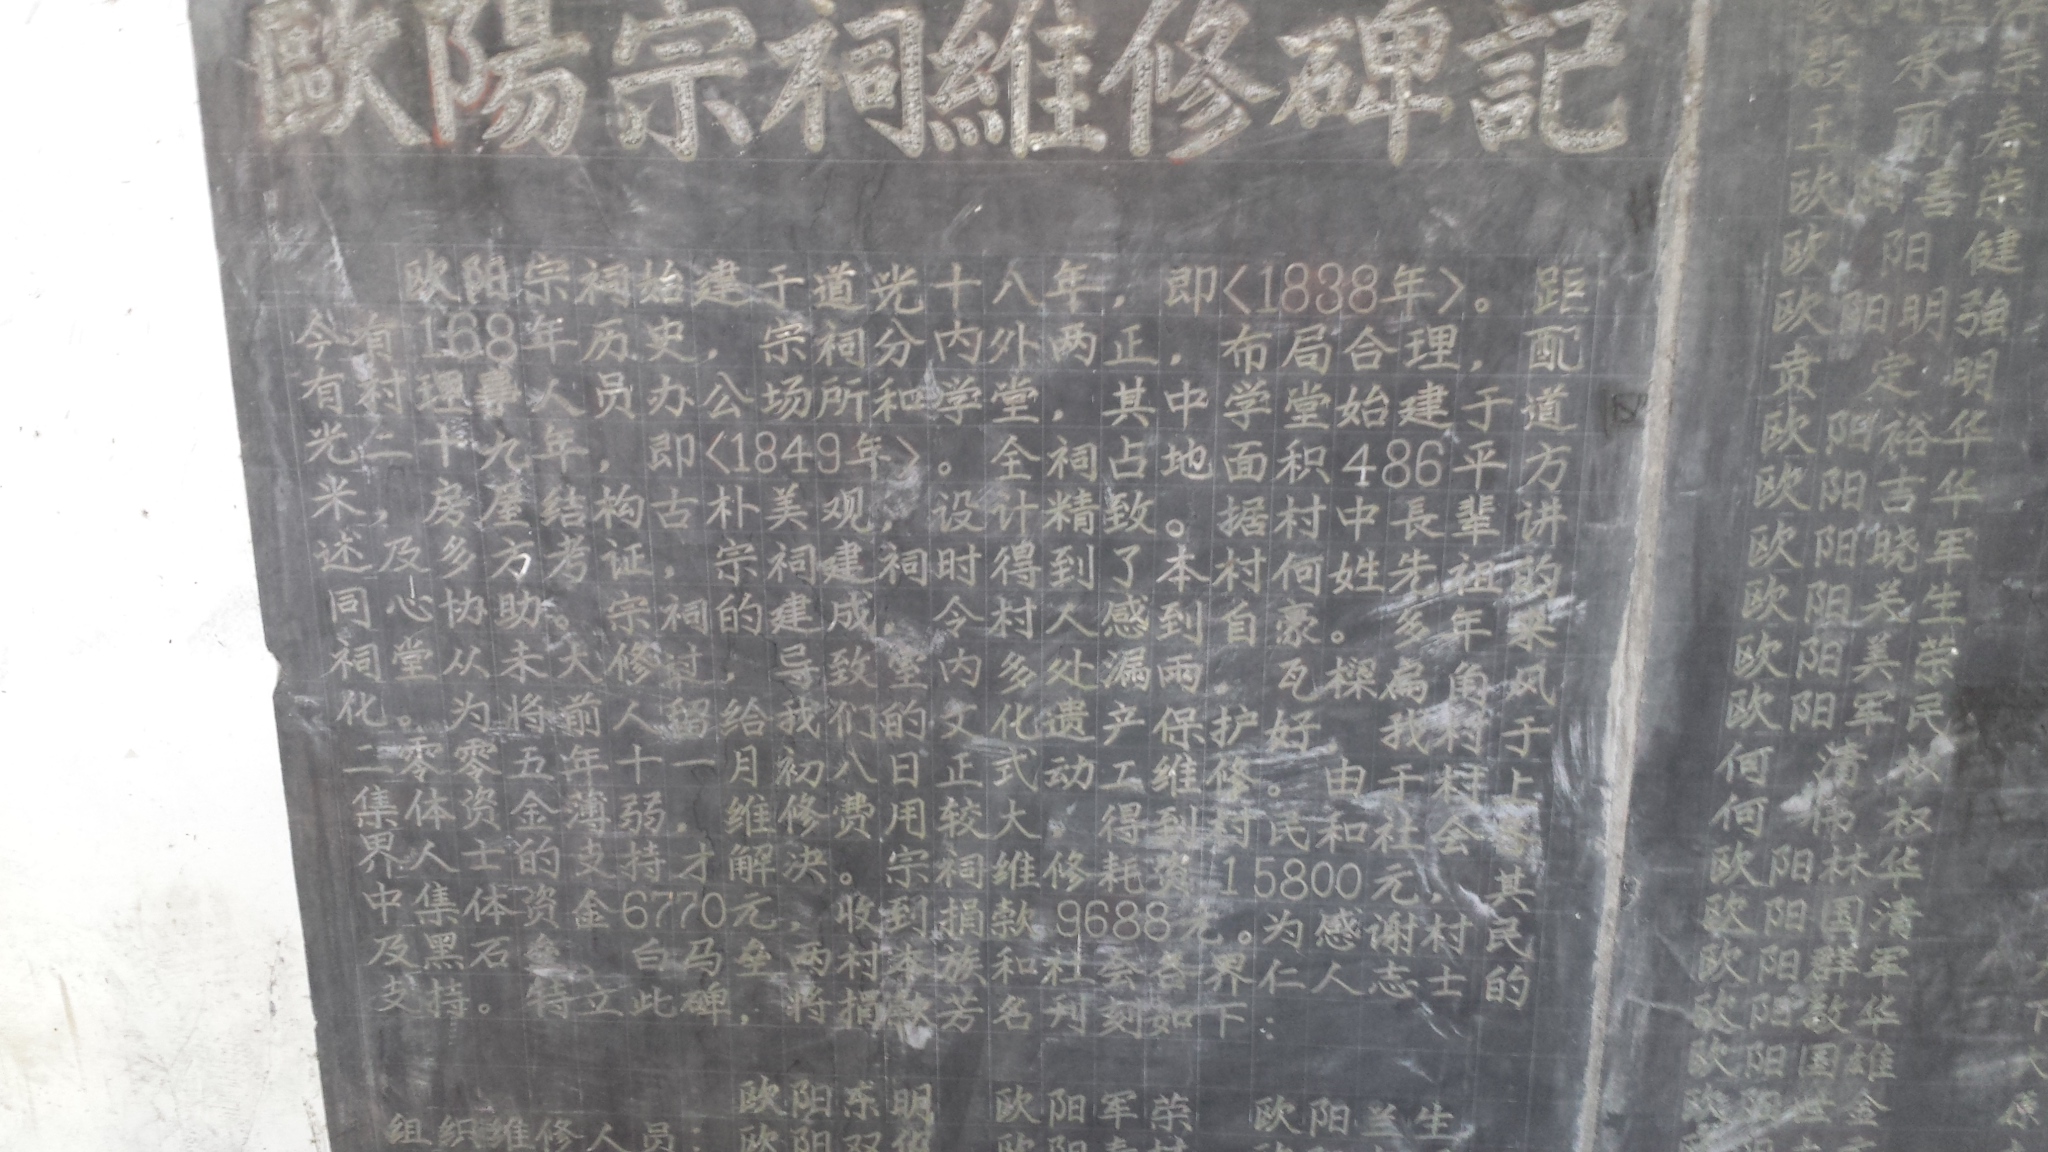 歐陽宗祠維修碑記
欧阳宗祠始建于道光十八年，即<1838年>。距
今有168年历史，宗祠分内外两正，布局合理，配
有村理事人员办公场所和学堂，其中学堂始建于道
光二十九年，即<1849年>。全祠占地面积486平方
米，房屋结构古朴美观，设计精致。据村中長辈讲
述及多方考证，宗祠建祠时得到了本村何姓先祖的
同心协助。宗祠的建成，令村人感到自豪。多年来
祠堂从未大修过，导致堂内多处漏雨 瓦樑扁角风
化。为将前人留给我们的文化遗产保护好 我村于
二零零五年十一月初八日正式动工维修。由于村上
集体资金薄弱，维修费用较大 得到村民和社会各
界人士的支持才解决。宗祠维修耗资15800元，其
中集体资金6770元，收到捐款9688元。为感谢村民
及黑石 白马垒两村本族和社会各界仁人志士的
支持。特立此碑，将捐款芳名刊刻如下：
欧阳东明 欧阳军荣 欧阳兰生
组织维修人员：欧阳双
王 丽春
欧阳喜荣
欧阳健
欧阳明強
贲定明
欧阳裕华
欧阳吉华
欧阳晓军
欧阳美生
欧阳美荣
欧阳军民
何清
何伟权
欧阳林华
欧阳国清
欧阳群军
欧阳敬华
欧阳国雄
欧阳世金